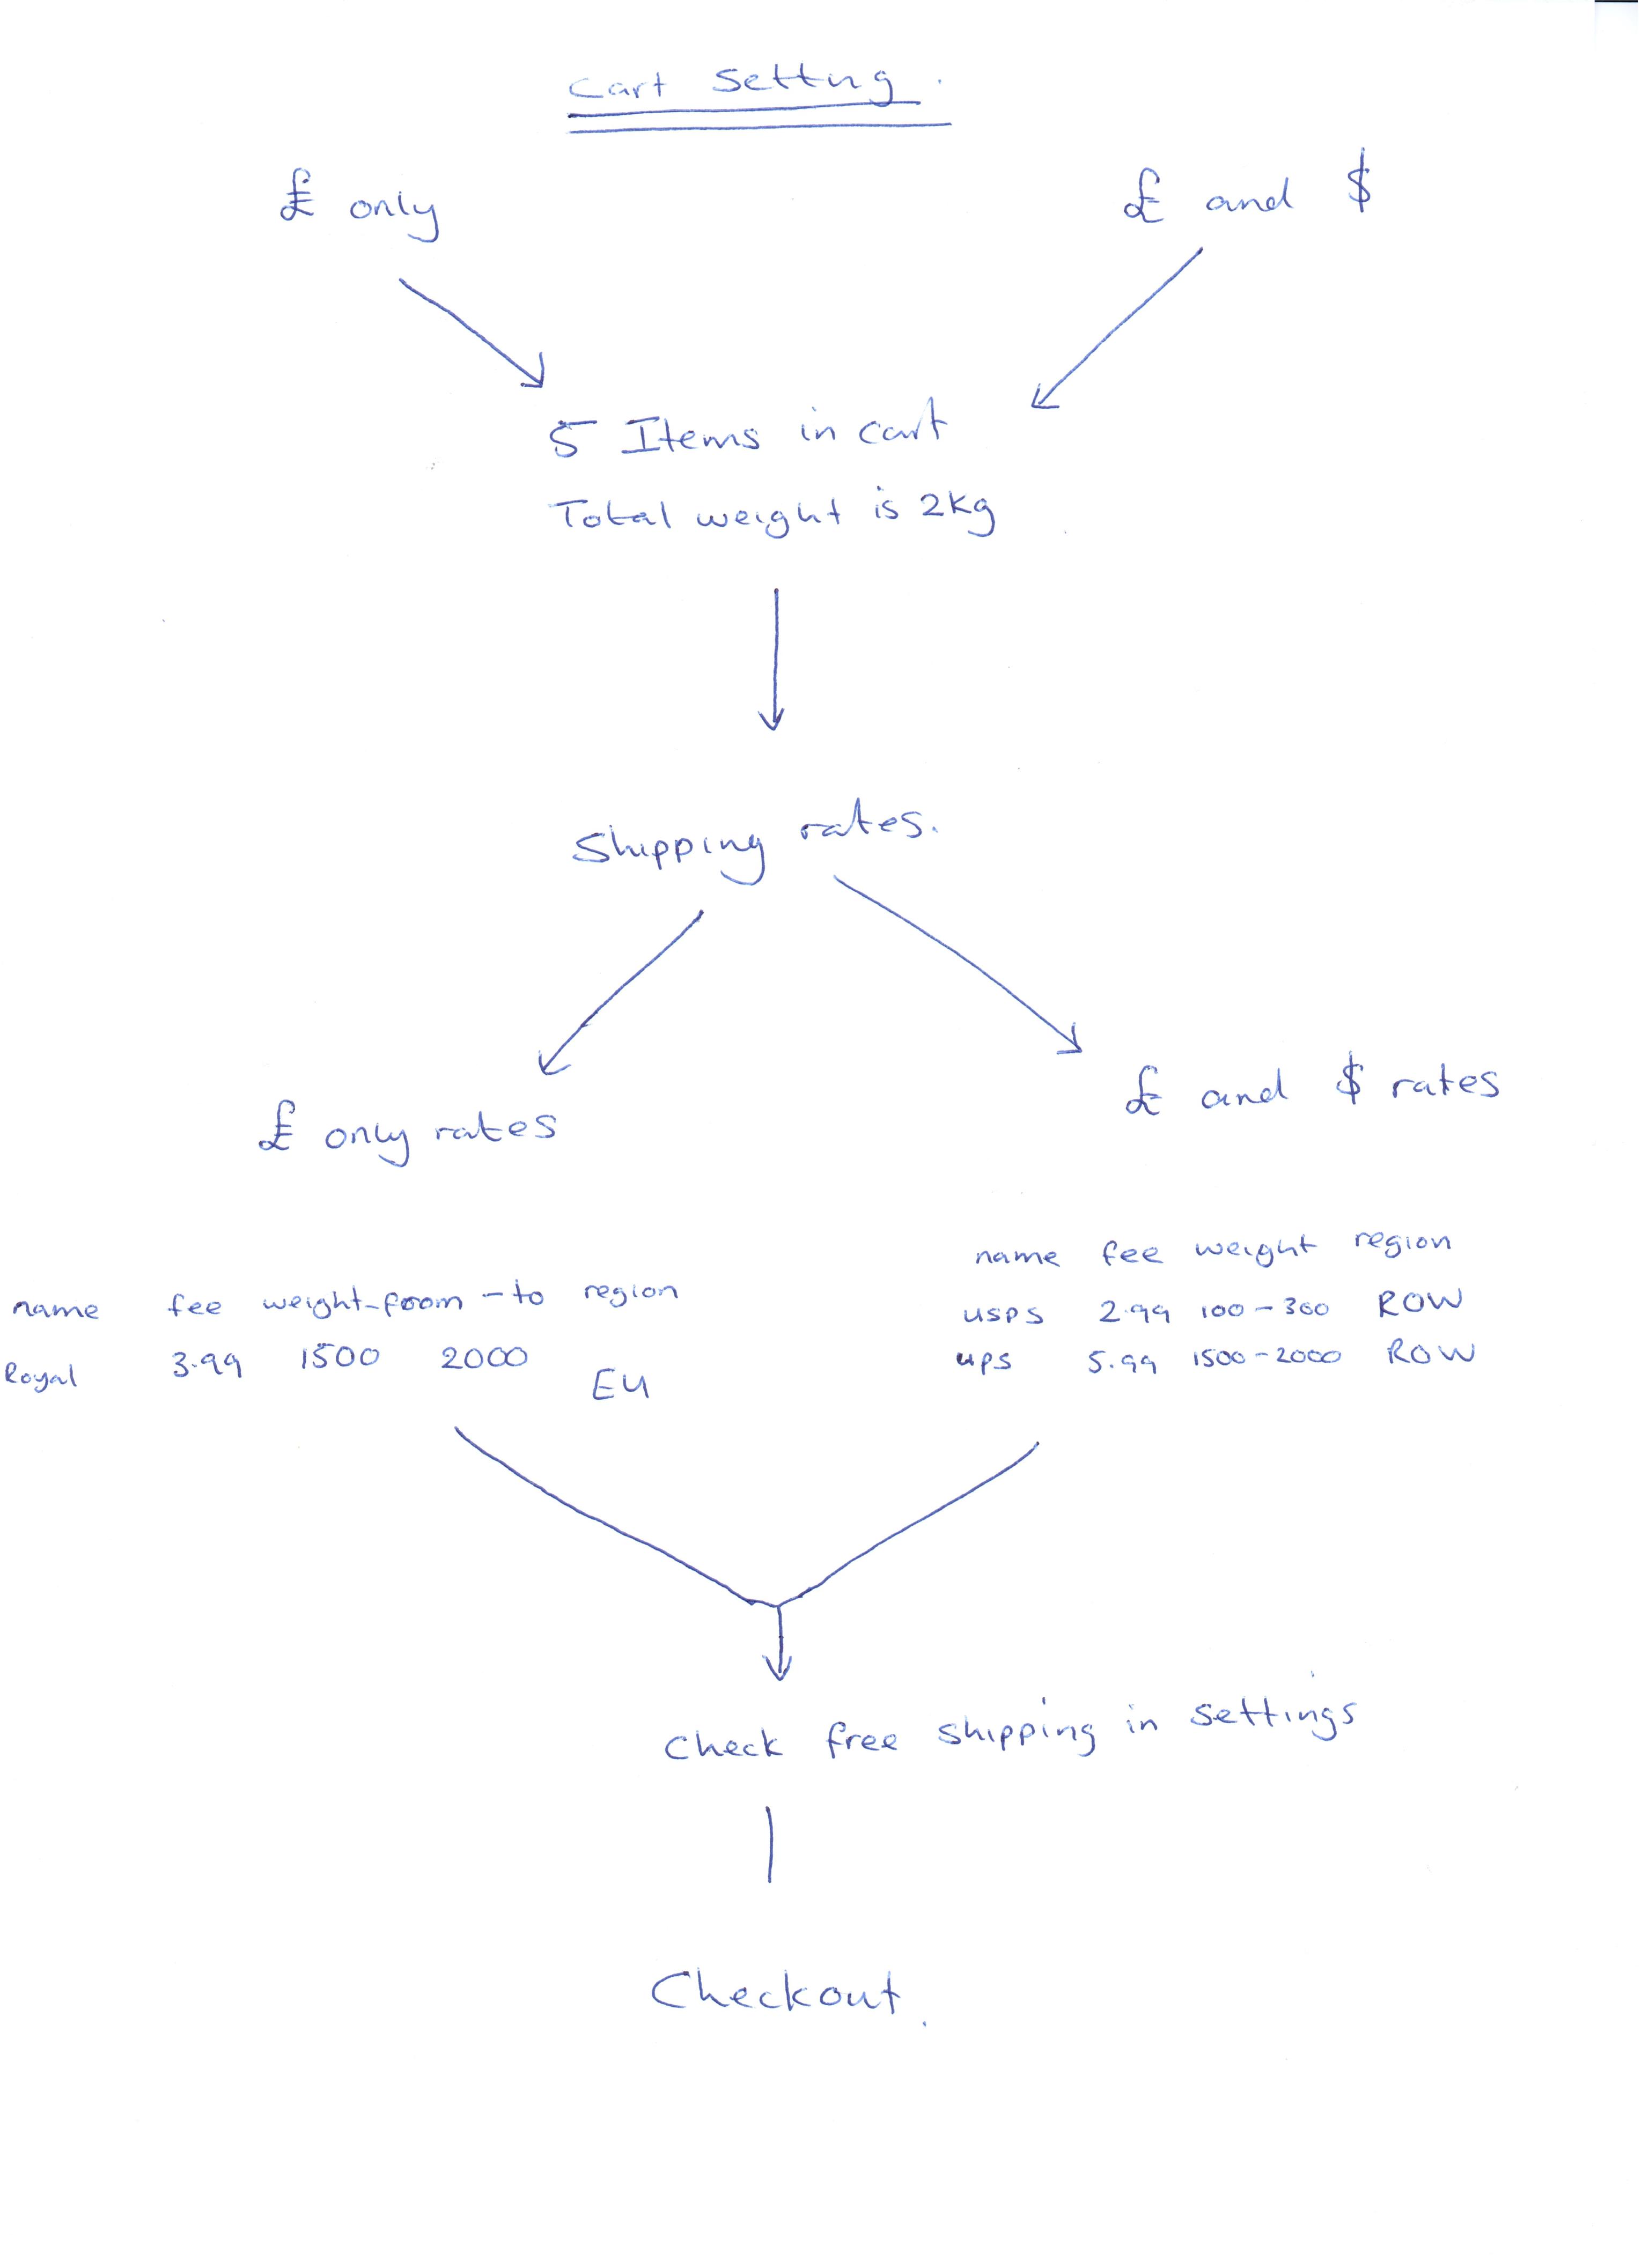 Cart Setting.
£ only
£ and $
5 Items in cart
Total weight is 2kg
Shipping rates.
£ only rates
£ and $ rates
name fee weight-from-to region
Royal 3.99 1500 2000 EU
name fee weight region
usps 2.99 100-300 ROW
ups 5.99 1500-2000 ROW
Check free shipping in settings
Checkout.